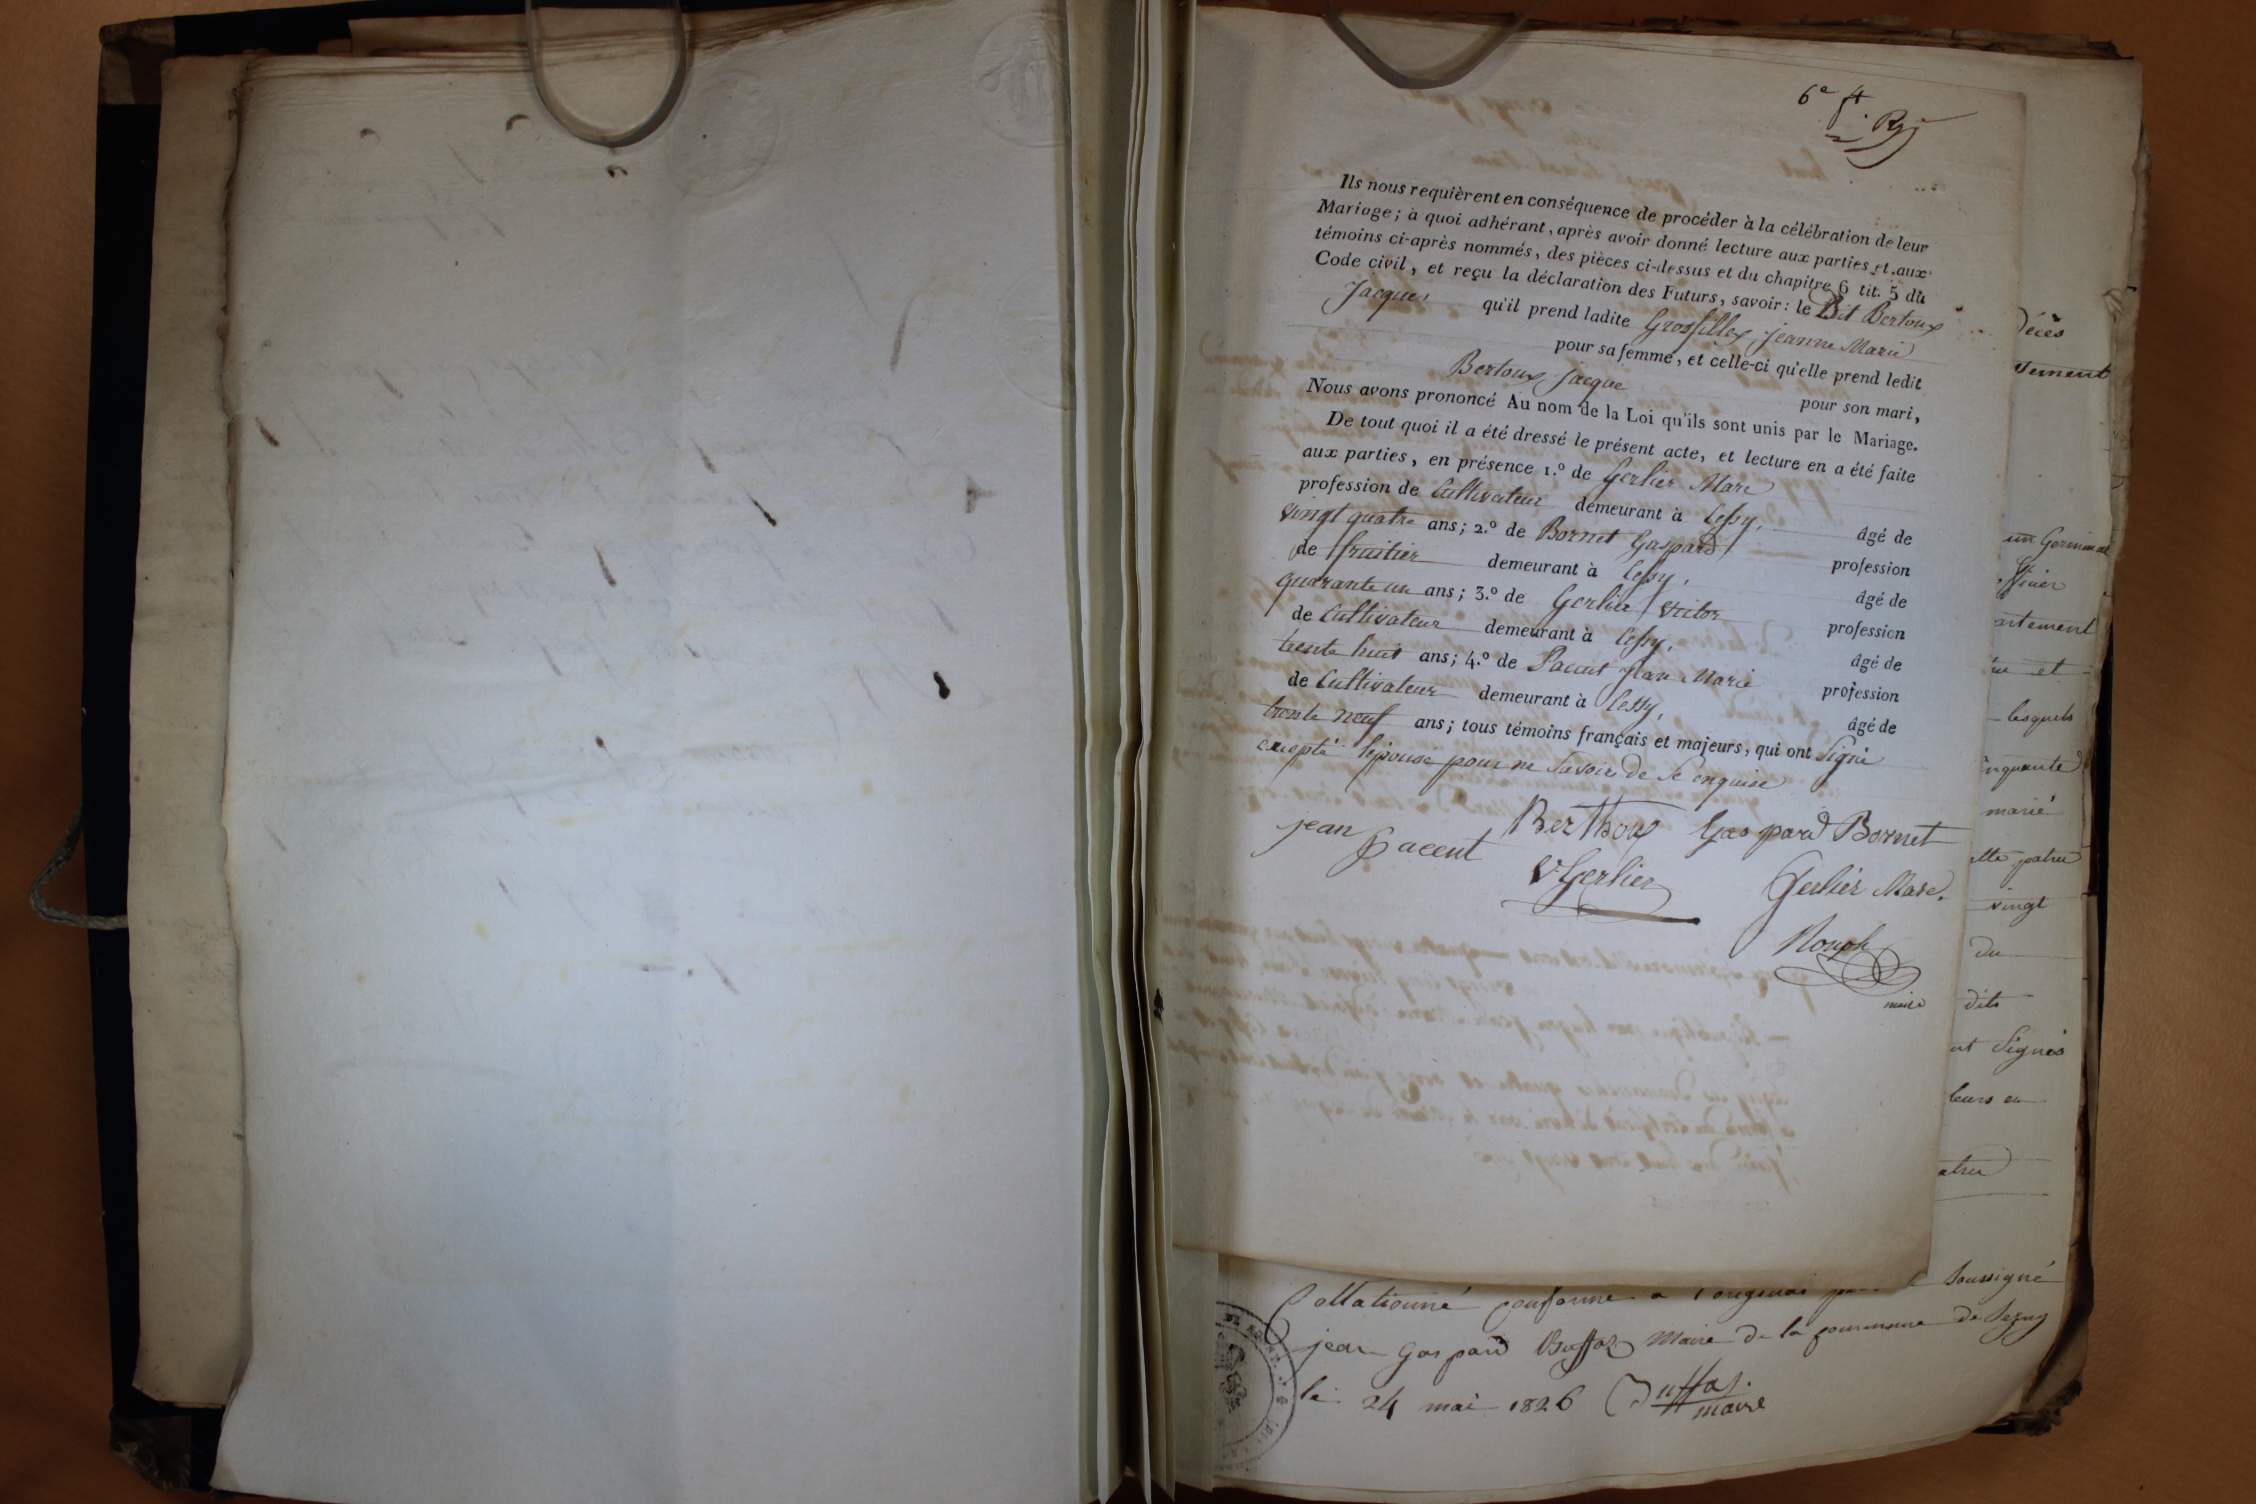 6e
Ils nous requièrent en conséquence de procéder à la célébration de leur
Mariage; à quoi adhérant, après avoir donné lecture aux parties et aux
témoins ci-après nommés, des pièces ci-dessus et du chapitre 6 tit. 5 du
Code civil, et reçu la déclaration des Futurs, savoir: le Dit Bertoux
Jacques qu'il prend ladite Grosfillex jeanne Marie
pour sa femme, et celle-ci qu'elle prend ledit
Bertoux jacque pour son mari,
Nous avons prononcé Au nom de la Loi qu'ils sont unis par le Mariage.
De tout quoi il a été dressé le présent acte, et lecture en a été faite
aux parties, en présence 1.º de Gerlier Marc
profession de Cultivateur demeurant à lessy, âgé de
vingt quatre ans; 2.º de Bornet Gaspard profession
de fruitier demeurant à lessy, âgé de
quarante un ans; 3.º de Gerlier victor profession
de Cultivateur demeurant à lessy, âgé de
trente huit ans; 4.º de Paccut jean Marie profession
de Cultivateur demeurant à lessy, âgé de
trente neuf ans; tous témoins français et majeurs, qui ont Signé
excepté lepouse pour ne savoir de ce enquise
jean Paccut Berthoux Gaspard Bornet
V Gerlier Gerlier Marc.
maire
décès
tement
un Germinal
artement
et
lesquels
inquante
marié
vingt
du
dits
nt Signés
leurs
Collationné conforme a l'original soussigné
jean Gaspard Buffaz Maire de la commune de
le 24 mai 1826 Buffaz
maire